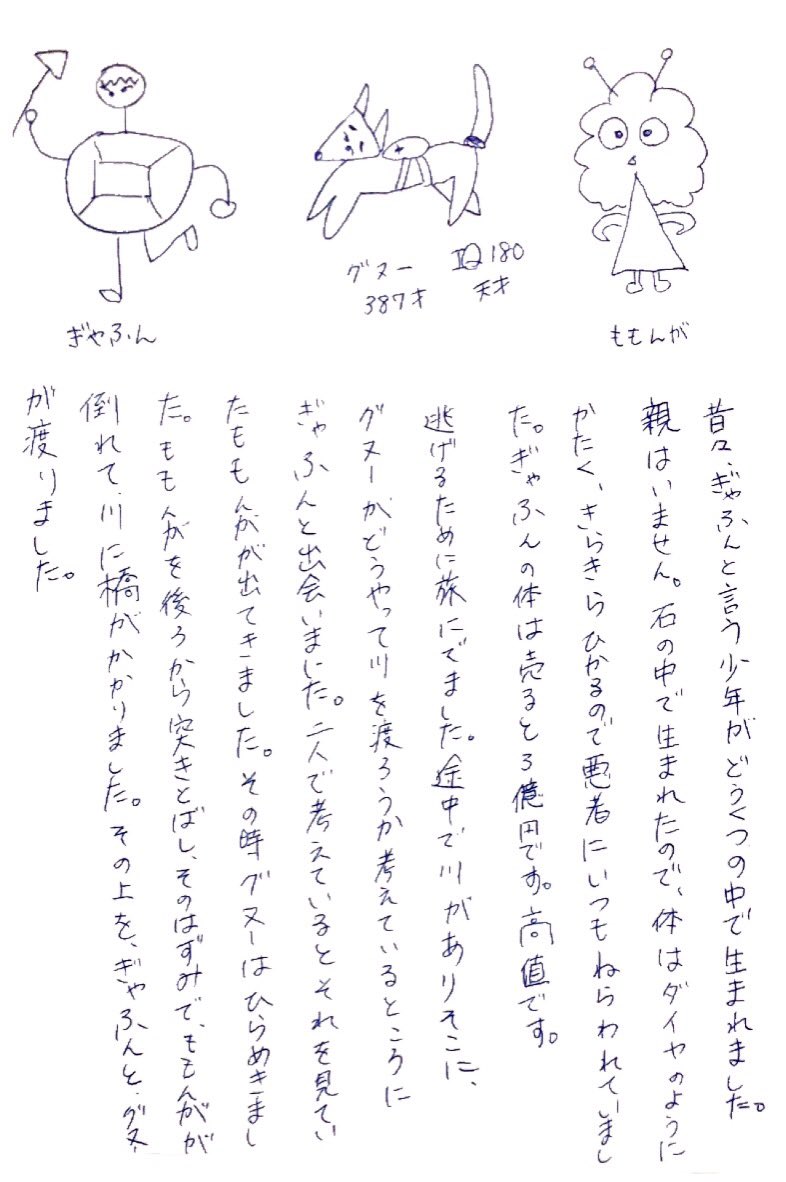 ぎゃふん
グヌー IQ180
387才 天才
ももんが
昔々、ぎゃふんと言う少年がどうくつの中で生まれました。
親はいません。石の中で生まれたので、体はダイヤのように
かたく、きらきらひかるので悪者にいつもねらわれていまし
た。ぎゃふんの体は売ると3億円です。高値です。
逃げるために旅にでました。途中で川がありそこに、
グヌーがどうやって川を渡ろうか考えているところに
ぎゃふんと出会いました。二人で考えているとそれを見てい
たももんがが出てきました。その時グヌーはひらめきまし
た。ももんがを後ろから突きとばし、そのはずみで、ももんがが
倒れて、川に橋がかかりました。その上を、ぎゃふんと、グヌー
が渡りました。